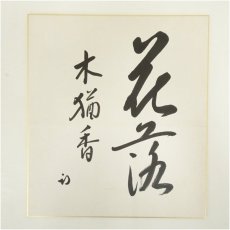 花落
木猶香